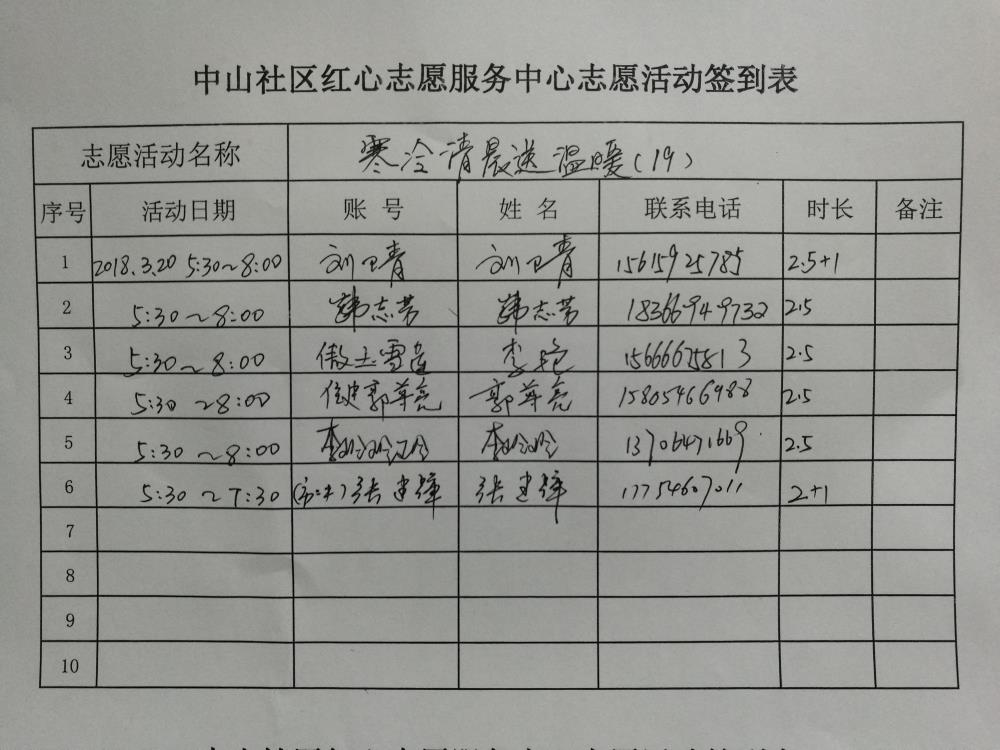 中山社区红心志愿服务中心志愿活动签到表
志愿活动名称 寒冷清晨送温暖(19)
序号 活动日期 账 号 姓 名 联系电话 时长 备注
1 2018.3.20 5:30~8:00 刘卫青 刘卫青 15615925785 2.5+1
2 5:30~8:00 韩志芳 韩志芳 18366949732 2.5
3 5:30~8:00 李艳 15666675813 2.5
4 5:30~8:00 郭华亮 郭华亮 15805466988 2.5
5 5:30~8:00 李玲玲 13706471669 2.5
6 5:30~7:30 张建辉 张建辉 17754607011 2+1
7
8
9
10